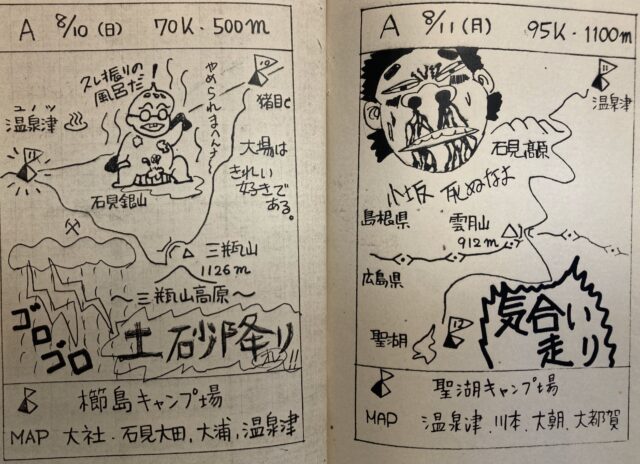 A 8/10 (日) 70K・500m
久し振りの
風呂だ!
やめられまへんナー
10
猪目C
ユノツ
温泉津
11
石見銀山
大場は
きれい
好きで
ある。
三瓶山
1126m
〜三瓶山高原〜
ゴロ
ゴロ
土砂降り
櫛島キャンプ場
MAP 大社・石見大田、大浦、温泉津
A 8/11 (月) 95K・1100m
11
温泉津
石見高原
小坂 死ぬなよ
島根県
雲月山
912m
広島県
聖湖
12
気合い
走り
聖湖キャンプ場
MAP 温泉津、川本、大朝、大都賀